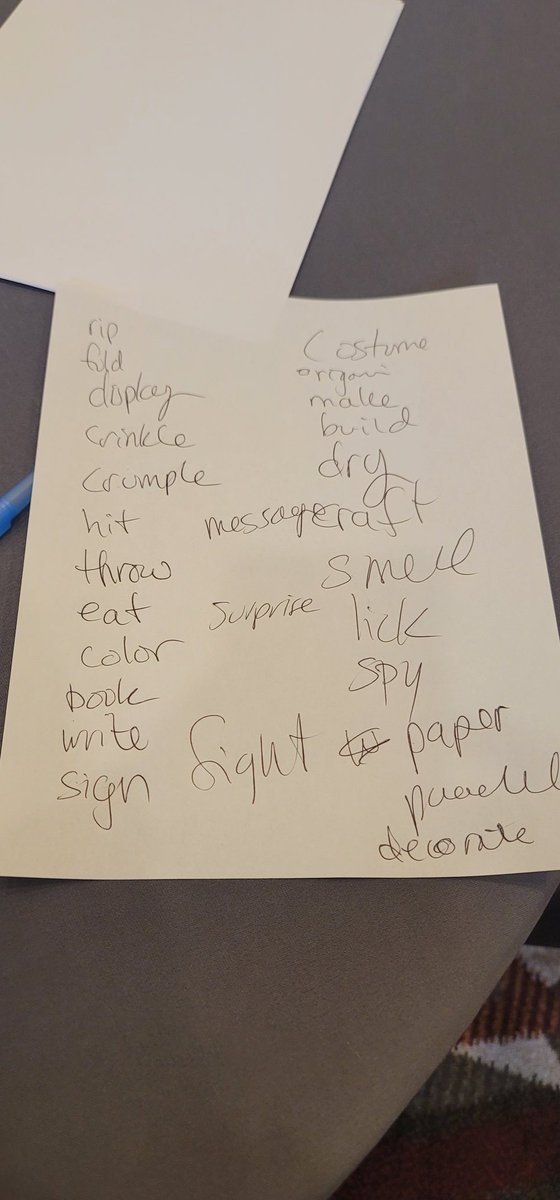 rip
fold
display
crinkle
crumple
hit
throw
eat
color
book
write
sign
message
surprise
fight
Costume
organi
make
build
dry
craft
smell
lick
spy
paper
decorate